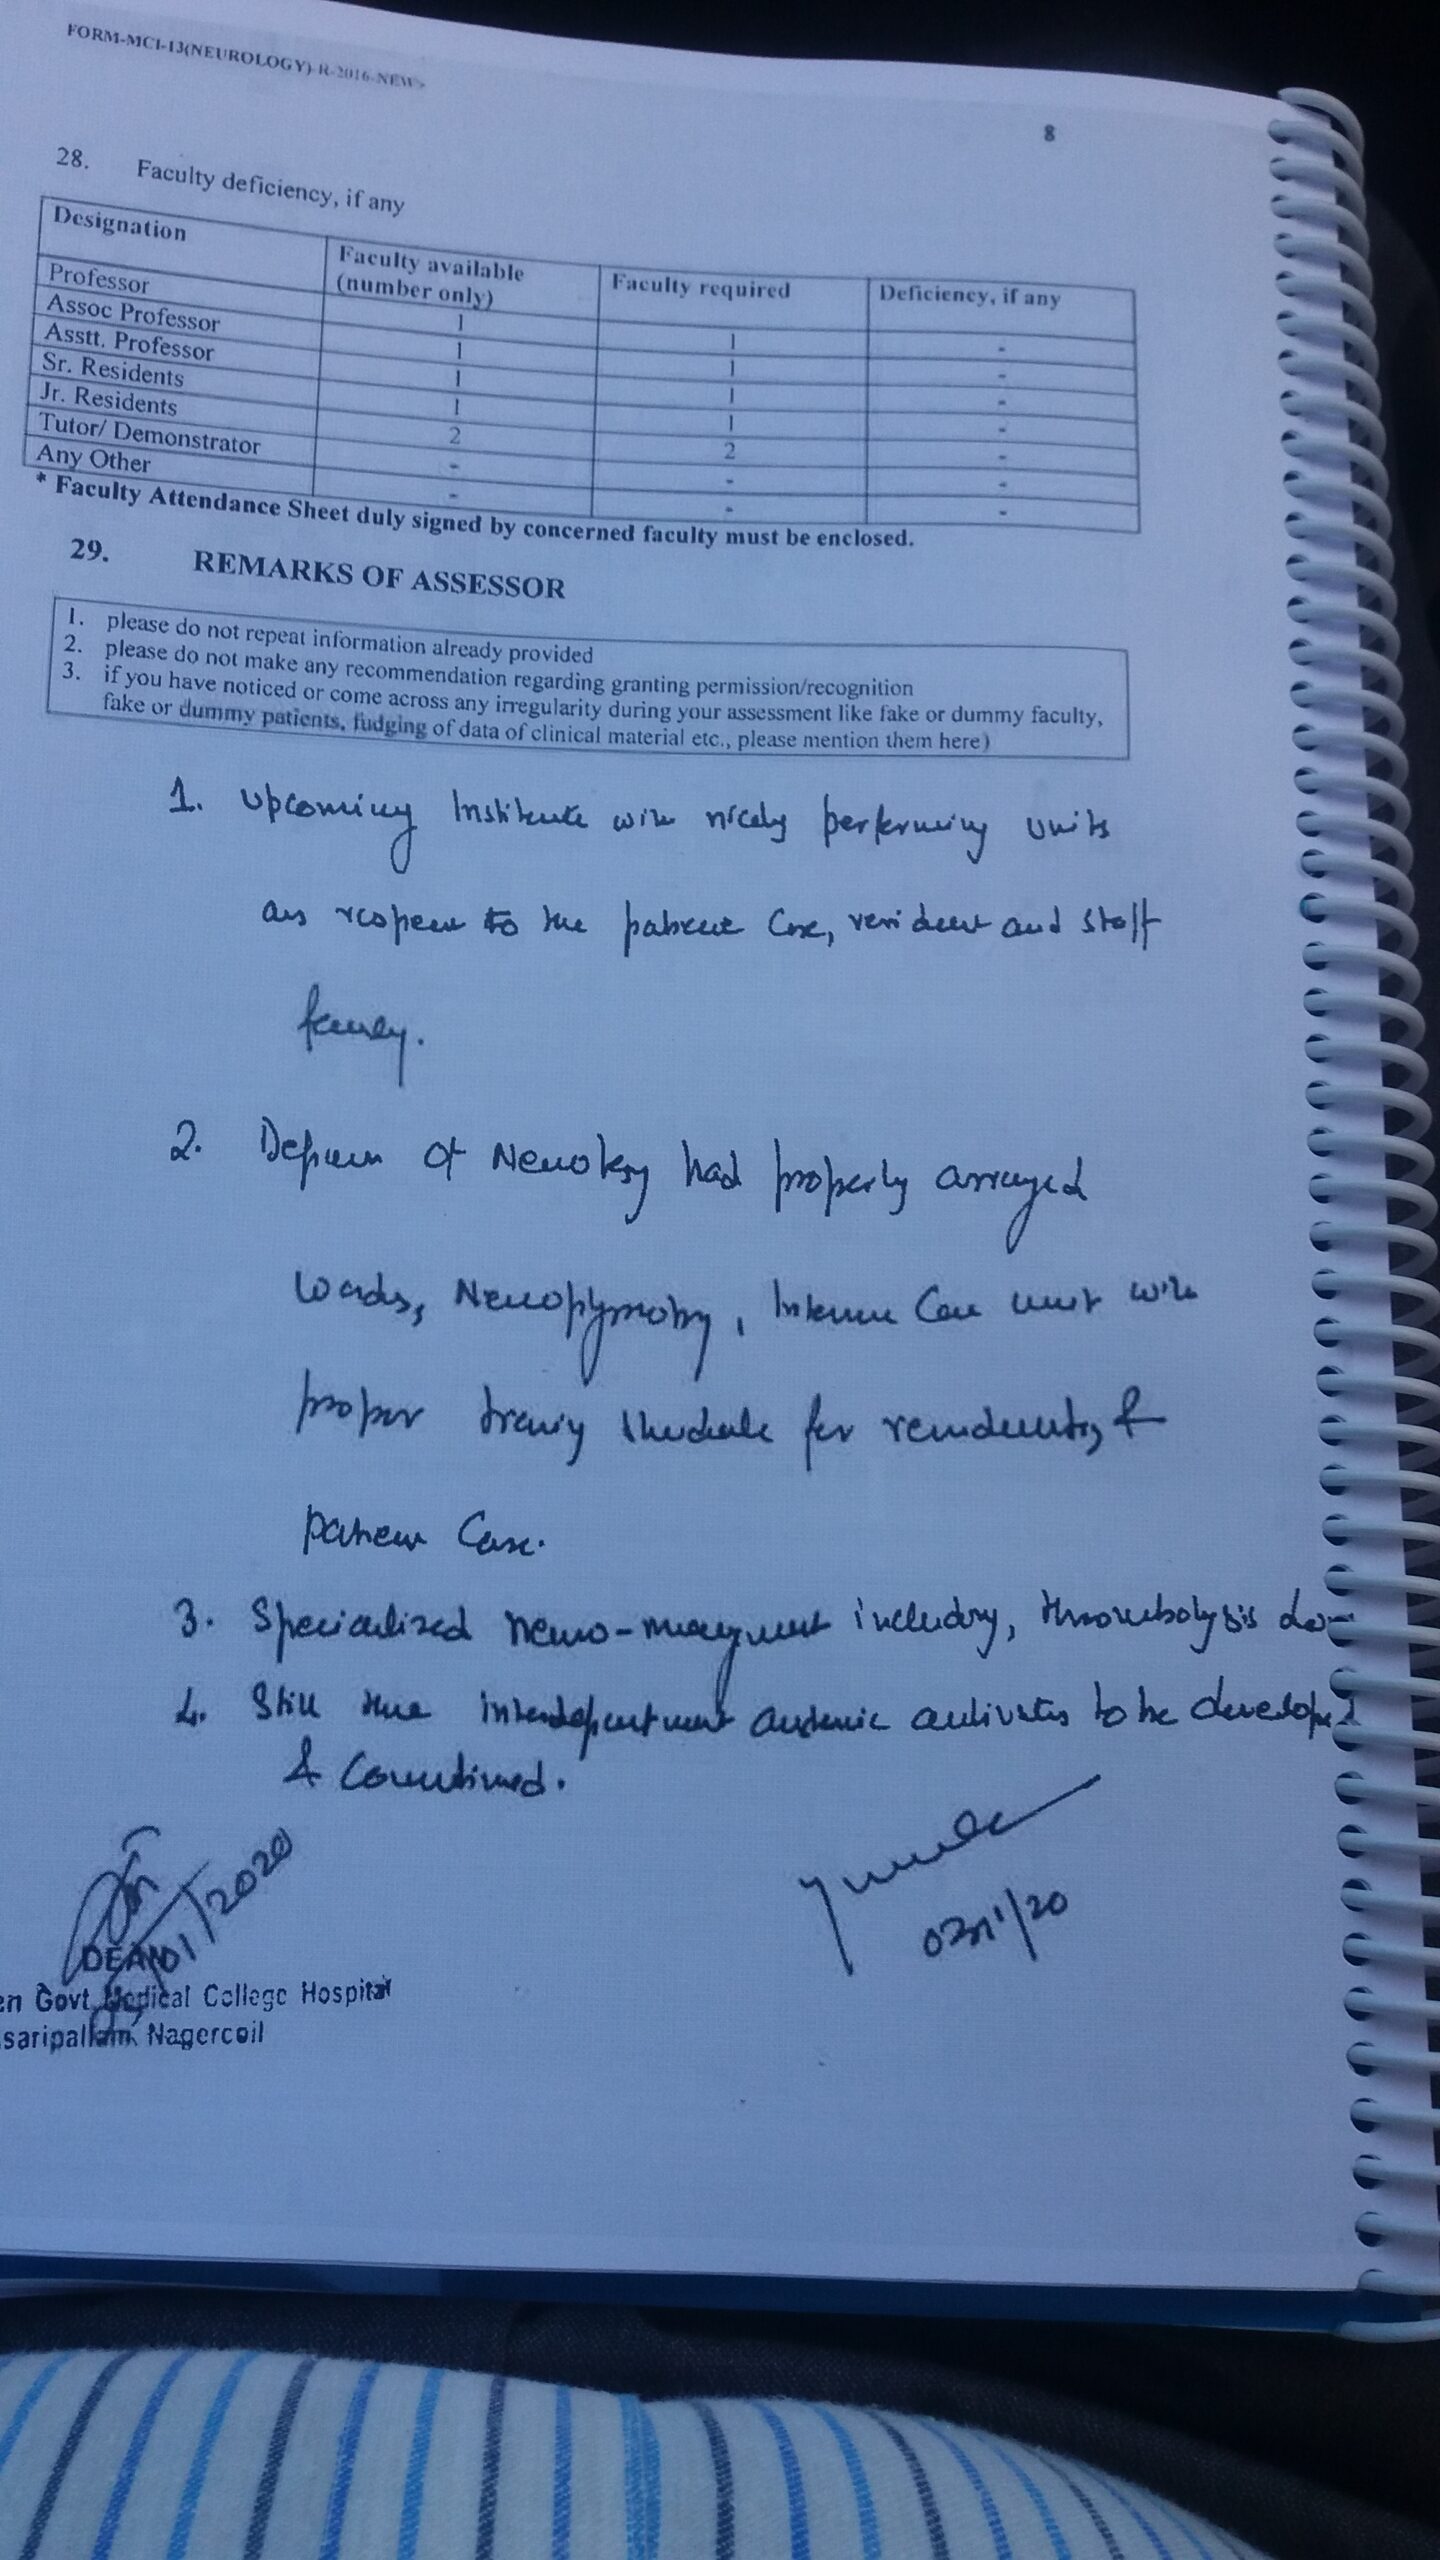 FORM-MCI-13(NEUROLOGY)-R-2016-NEW>
8
28. Faculty deficiency, if any
Designation Faculty available (number only) Faculty required Deficiency, if any
Professor 1 1 -
Assoc Professor 1 1 -
Asstt. Professor 1 1 -
Sr. Residents 1 1 -
Jr. Residents 2 2 -
Tutor/ Demonstrator - - -
Any Other - - -
* Faculty Attendance Sheet duly signed by concerned faculty must be enclosed.
29. REMARKS OF ASSESSOR
1. please do not repeat information already provided
2. please do not make any recommendation regarding granting permission/recognition
3. if you have noticed or come across any irregularity during your assessment like fake or dummy faculty,
fake or dummy patients, fudging of data of clinical material etc., please mention them here)
1. Upcoming Institute with nicely performing units
as respect to the patient Care, resident and staff
2. of Neurology had properly arranged
wards, Intensive Care unit with
proper for residents, &
patient Care.
3. Specialized neuro-management including, thrombolysis
4. Still the interdepartment academic activities to be developed
& Continued.
/01/2020
/20
DEAN
en Govt Medical College Hospital
saripallam, Nagercoil